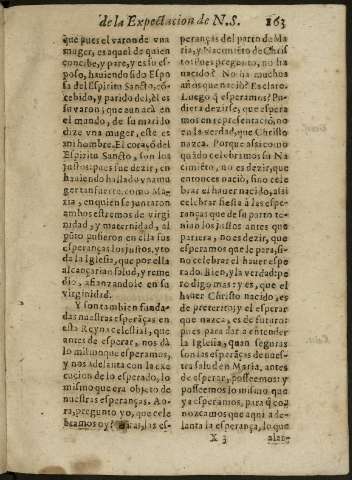 de la Expectacion de N.S. 163
que pues el varon de vna
muger, es aquel de quien
concibe, y pare, y es su es-
poso, hauiendo sido Espo
sa del Espiritu Sancto, cõ
cebido, y parido del, èl es
su varon; que aun acà en
el mundo, de su marido
dize vna muger, este es
mi hombre. El coraçõ del
Espiritu Sancto, son los
justos: pues fue dezir, en
hauiendo hallado vna mu
ger tan fuerte como Ma-
ria, en quien se juntaron
ambos estremos de virgi
nidad, y maternidad, al
pũto pusieron en ella sus
esperanças los justos, y to-
da la Iglesia, que por ella
alcançarian salud, y reme
dio, afiançandole en su
virginidad.
Y son tambien funda-
das nuestras esperãças en
esta Reyna celestial, que
antes de esperar, nos dà
lo mismo que esperamos,
y nos adelanta con la exe
cucion de lo esperado, lo
mismo que era objeto de
nuestras esperanças. Ao-
ra, pregunto yo, que cele
bramos oy? las es-
peranças del parto de Ma
ria, y Nacimiẽto de Chris
to? Pues pregunto, no ha
nacido? No ha muchos
años que naciò? Es claro.
Luego q̃ esperamos? Pu-
diera dezirse, que espera
mos en representaciõ, no
en la verdad, que Christo
nazca. Porque assi como
quãdo celebramos su Na
cimiẽto, no es dezir, que
entonces naciò, sino cele
brar el hauer nacido, assi
celebrar fiesta à las espe-
ranças que de su parto te-
nian los justos antes que
pariera, no es dezir, que
esperamos que le para, si-
no celebrar el hauer espe
rado. Bien, y la verdad: pe
ro digo mas: y es, que el
hauer Christo nacido, es
de preterito; y el esperar
que nazca, es de futuro:
pues para dar a entender
la Iglesia, quan seguras
son las esperãças de nues-
tra salud en Maria, antes
de esperar, posseemos: y
posseemos lo mismo que
ya esperamos, para q̃ co-
nozcamos que aqui ade-
lanta la esperança, lo que
X 3 alan-